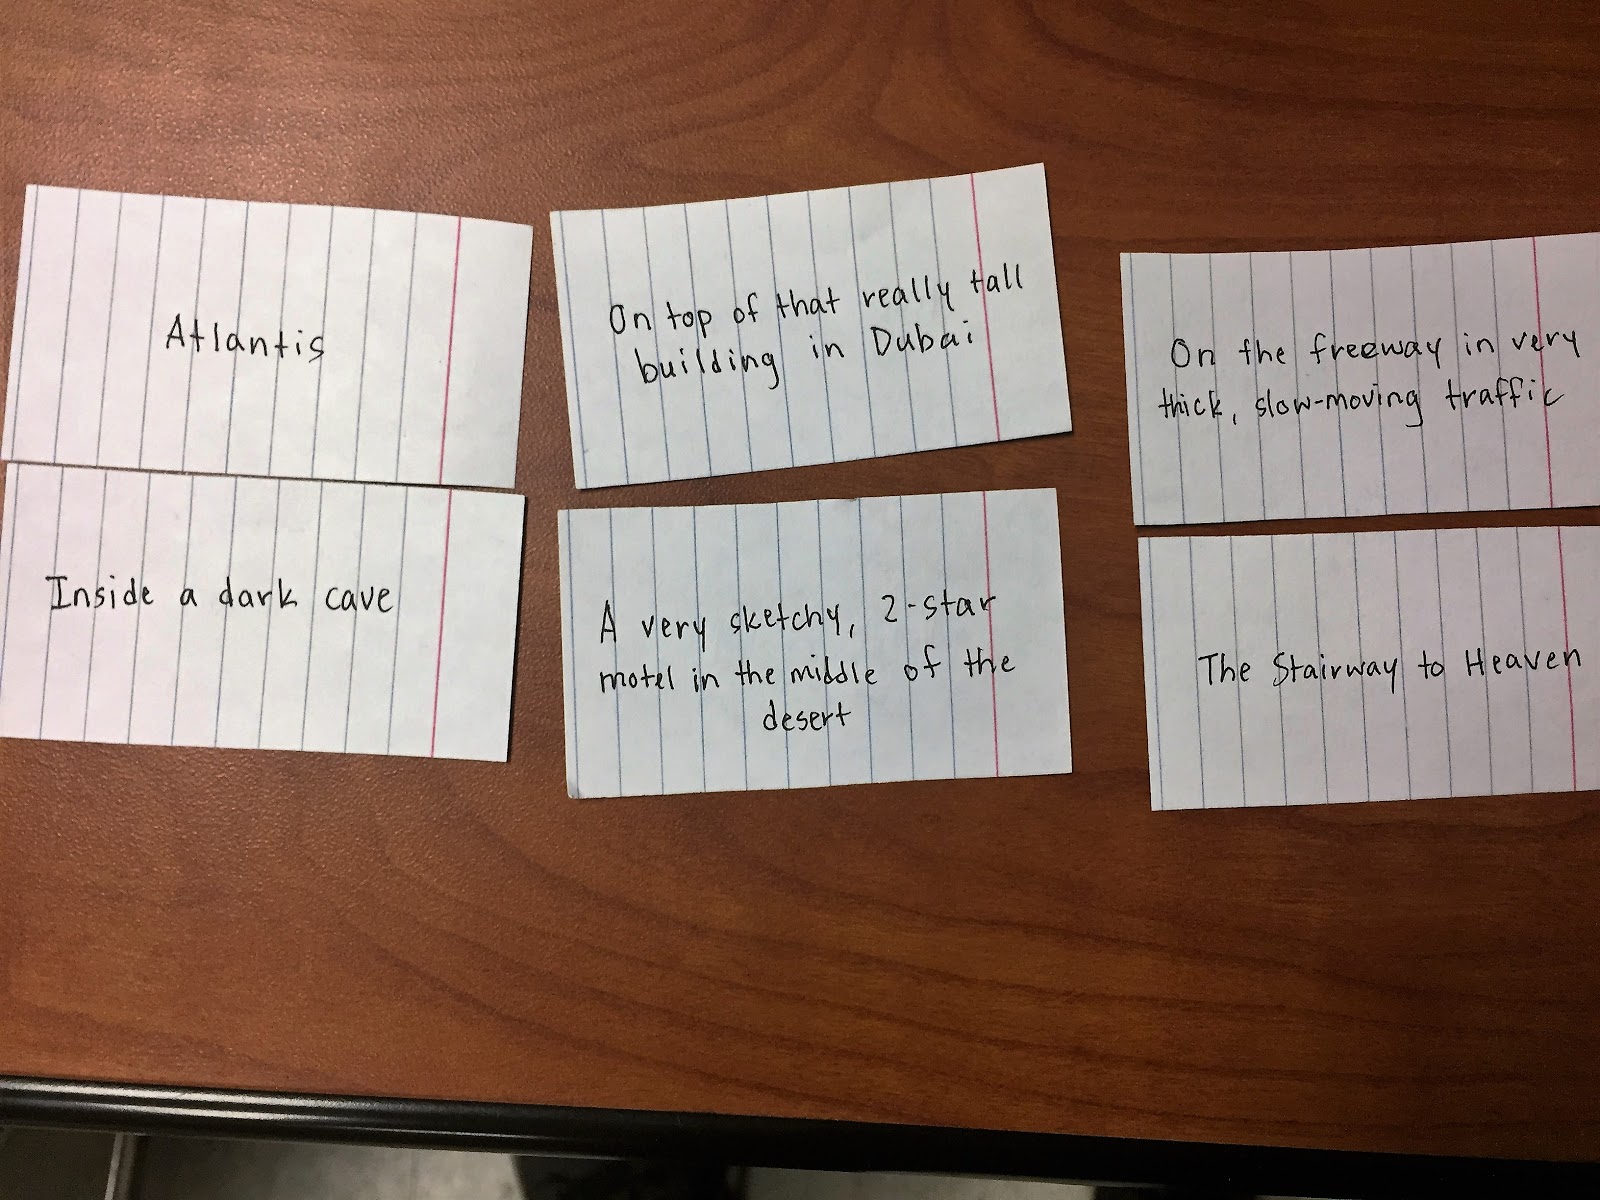 Atlantis
On top of that really tall
building in Dubai
On the freeway in very
thick, slow-moving traffic
Inside a dark cave
A very sketchy, 2-star
motel in the middle of the
desert
The Stairway to Heaven